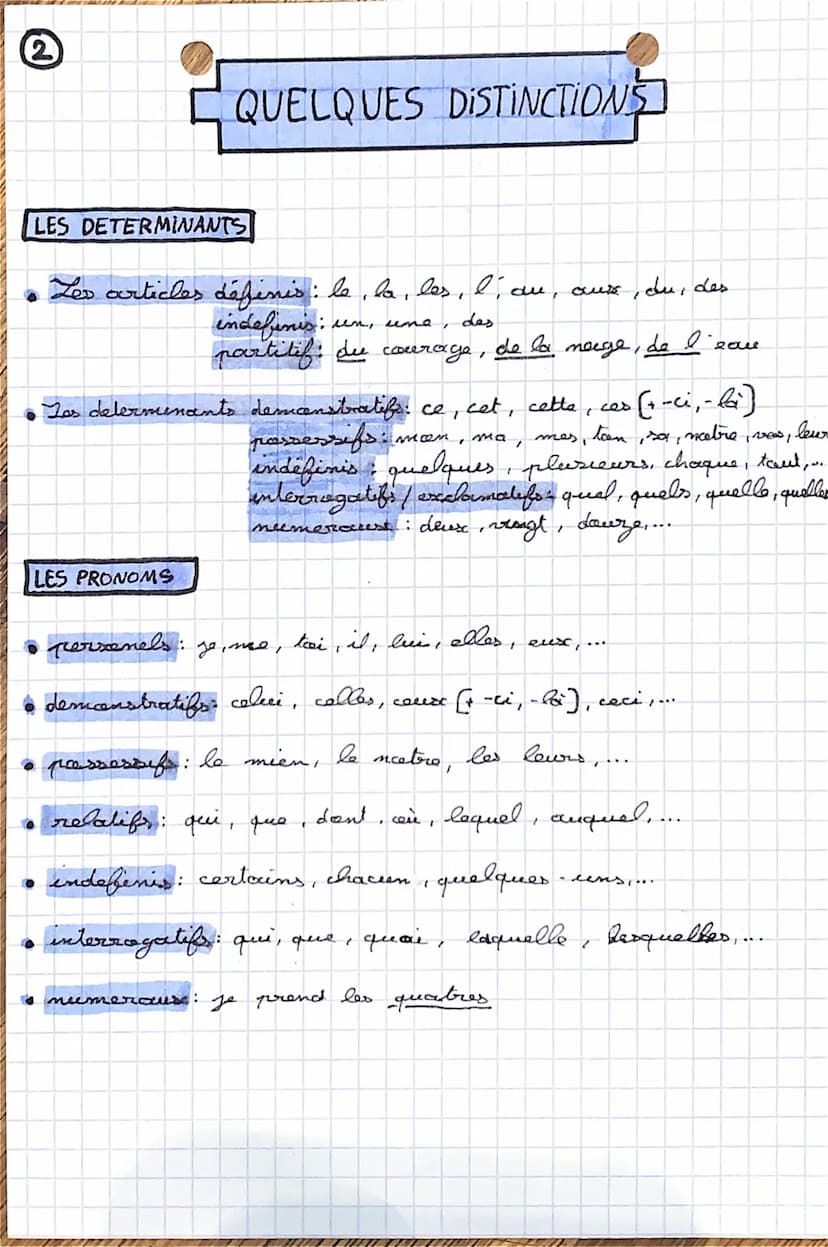 2
QUELQUES DISTINCTIONS
LES DETERMINANTS
• Les articles définis : le, la, les, l', au, aux, du, des
indefinis : un, une, des
partitif : du courage, de la neige, de l'eau
• Les determinants demonstratifs : ce, cet, cette, ces [+ -ci, -là]
possessifs : mon, ma, mes, ton, sa, notre, vos, leur
indéfinis : quelques, plusieurs, chaque, tout,...
interrogatifs / exclamatifs : quel, quels, quelle, quelles
numeraux : deux, vingt, douze,...
LES PRONOMS
• personels : je, me, toi, il, lui, elles, eux,...
• demonstratifs : celui, celles, ceux [+ -ci, -là], ceci,...
• possessifs : le mien, le notre, les leurs,...
• relatifs : qui, que, dont, où, lequel, auquel,...
• indefinis : certains, chacun, quelques-uns,...
• interrogatifs : qui, que, quoi, laquelle, lesquelles,...
• numeraux : je prend les quatres